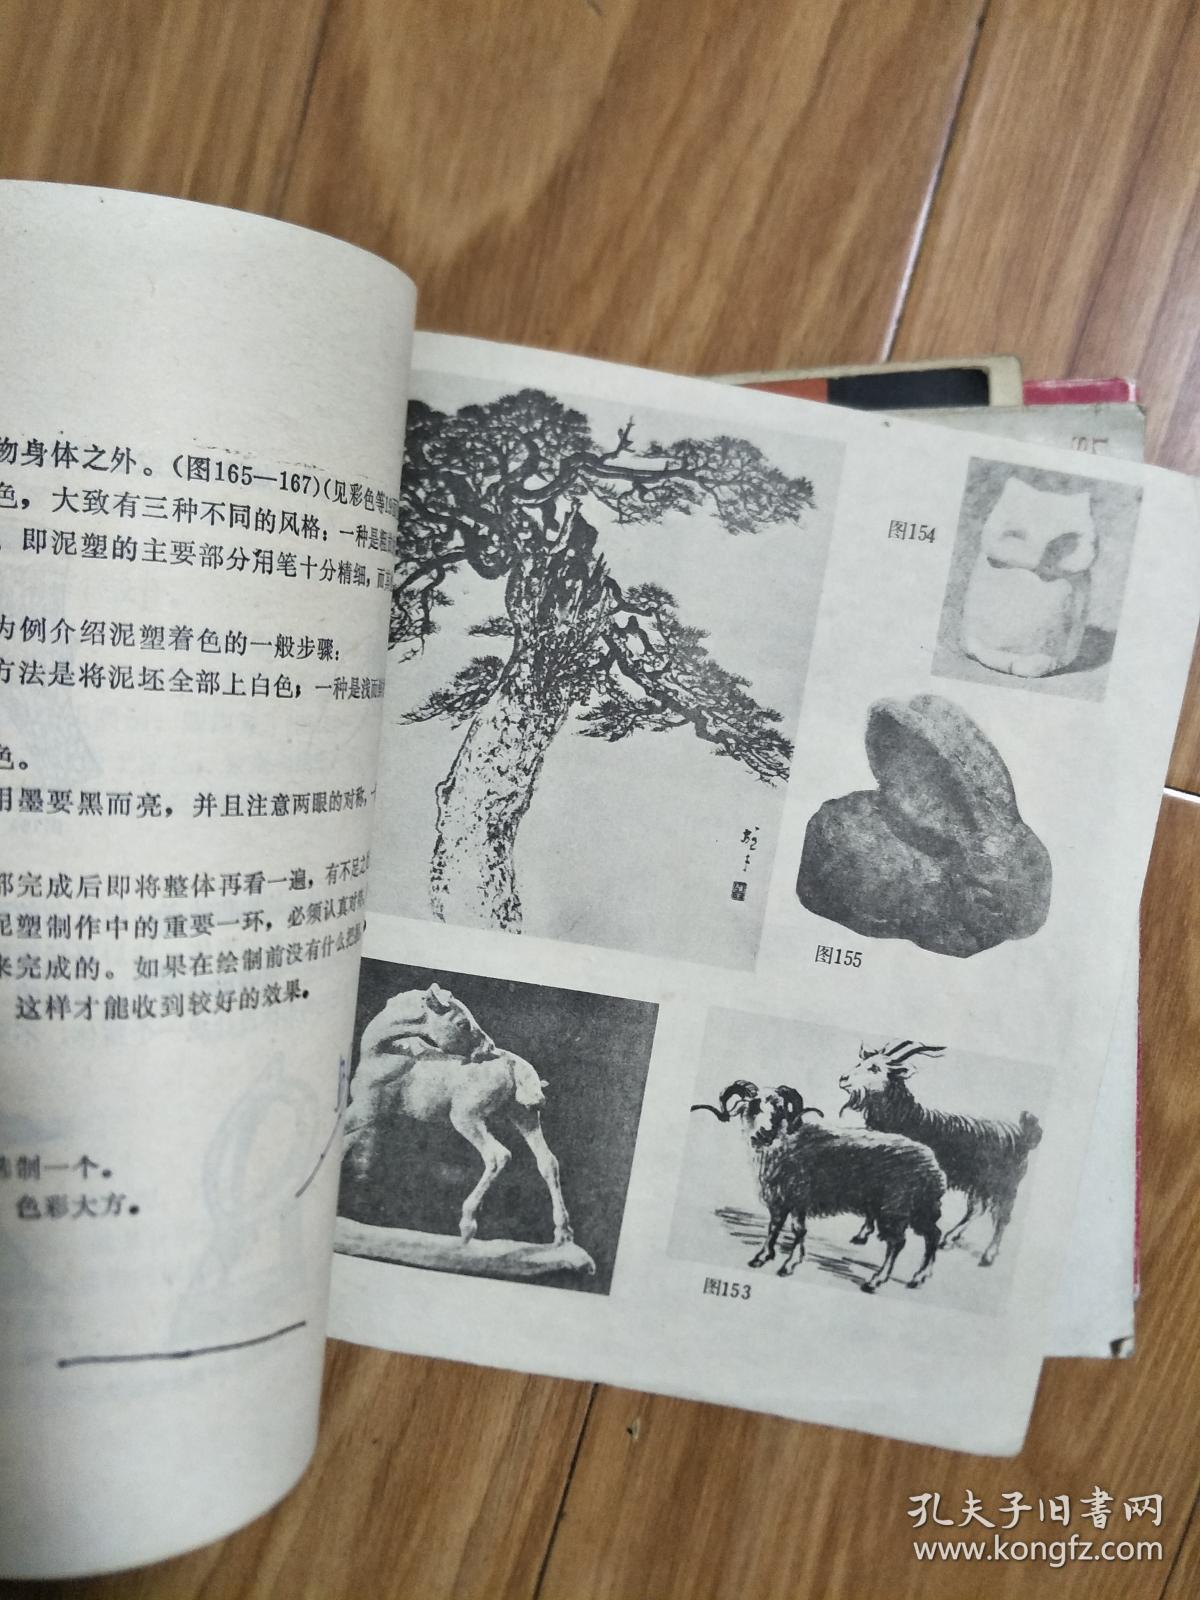 物身体之外。(图165—167)(见彩色
色，大致有三种不同的风格：一种是
即泥塑的主要部分用笔十分精细，而
为例介绍泥塑着色的一般步骤：
方法是将泥坯全部上白色，一种是浅而
色。
用墨要黑而亮，并且注意两眼的对称，
部完成后即将整体再看一遍，有不足之
泥塑制作中的重要一环，必须认真对
来完成的。如果在绘制前没有什么把
这样才能收到较好的效果。
制一个。
色彩大方。
图154
图155
图153
孔夫子旧書网
www.kongfz.com